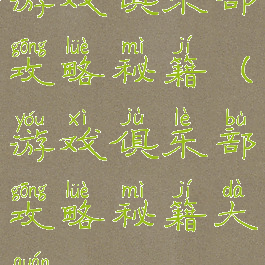 游戏俱乐部
gōng lüè mì jí
攻略秘籍(
yóu xì jù lè bù
游戏俱乐部
gōng lüè mì jí dà
攻略秘籍大
quán